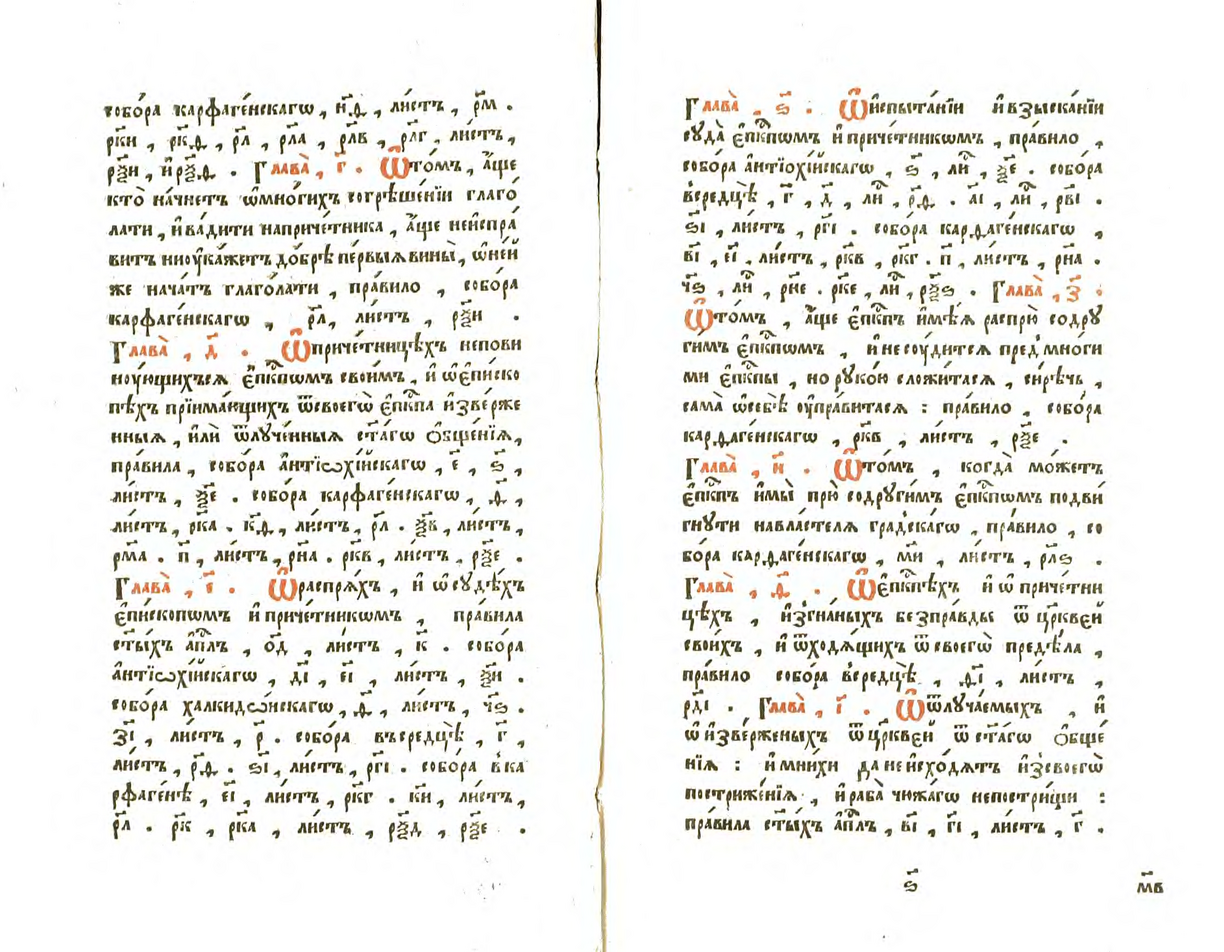 собо́ра карѳаге́нскагѡ , н҃ѳ , ли́стъ , рм҃ .
рк҃и , рк҃ѳ , рл҃ , рл҃а , рл҃в , рл҃г , ли́стъ ,
рѯ҃и , и҆ рѯ҃ѳ . Глава̀ , г҃ . Ѡ҆то́мъ , а҆́ще
кто̀ начне́тъ ѡ҆мно́гихъ согрѣше́нїи глаго́
лати , и҆вади́ти напричє́тника , а҆́ще неи҆спра́
витъ ниоу҆ка́жетъ до́брѣ пе́рвыѧ вины̀ , ѡ҆не́й
же нача́тъ глаго́лати , пра́вило , собо́ра
карфаге́нскагѡ , рл҃а , ли́стъ , рѯ҃и .
Глава̀ , д҃ . Ѡ҆причє́тницѣхъ непови
ноу́ющихъсѧ є҆пⷭ҇кпѡмъ свои́мъ , и҆ ѡ҆є҆пи́ско
пѣхъ прїима́ющихъ ѿсвоегѡ̀ є҆пⷭ҇кпа и҆зве́рже
нныѧ , и҆лѝ ѿлуче́нныѧ ст҃а́гѡ ѻ҆бще́нїѧ ,
пра́вила , собо́ра а҆нтїѡхі́йскагѡ , є҃ , ѕ҃ ,
ли́стъ , ѯ҃е . собо́ра карфаге́нскагѡ , ѳ҃ ,
ли́стъ , рк҃а . к҃ѳ , ли́стъ , рл҃ . ѯ҃в , ли́стъ ,
рм҃а . п҃ , ли́стъ , рн҃а . рк҃в , ли́стъ , рѯ҃е .
Глава̀ , є҃ . Ѡ҆распрѧ́хъ , и҆ ѡ҆судѣ́хъ
є҆пи́скопѡмъ и҆причє́тникѡмъ , пра́вила
ст҃ы́хъ а҆пⷭ҇лъ , о҃д , ли́стъ , к҃ . собо́ра
а҆нтїѡхі́йскагѡ , д҃і , є҃і , ли́стъ , ѯ҃и .
собо́ра халкидѡ́нскагѡ , ѳ҃ , ли́стъ , ч҃ѕ .
з҃і , ли́стъ , р҃ . собо́ра въсредцѣ̀ , г҃ ,
ли́стъ , р҃ѳ . ѕ҃і , ли́стъ , рг҃і . собо́ра вка
рфаге́нѣ , є҃і , ли́стъ , рк҃г . к҃и , ли́стъ ,
рл҃ . рк҃ , рк҃а , ли́стъ , рѯ҃д , рѯ҃е .
Глава̀ , ѕ҃ . Ѡ҆и҆спыта́нїи и҆взыска́нїи
суда̀ є҆пⷭ҇кпѡмъ и҆причє́тникѡмъ , пра́вило ,
собо́ра а҆нтїохі́йскагѡ , ѕ҃ , лиⷭ҇ , ѯ҃е . собо́ра
всредцѣ̀ , г҃ , д҃ , лиⷭ҇ , р҃ѳ . а҃і , лиⷭ҇ , рв҃і .
ѕ҃і , ли́стъ , рг҃і . собо́ра карѳаге́нскагѡ ,
в҃і , є҃і , ли́стъ , рк҃в , рк҃г . п҃ , ли́стъ , рн҃а .
ч҃ѕ , лиⷭ҇ , рн҃е . рк҃е , лиⷭ҇ , рѯ҃ѕ . Глава̀ , з҃ .
Ѡ҆то́мъ , а҆́ще є҆пⷭ҇кпъ и҆мѣ́ѧ распрю̀ содру
ги́мъ є҆пⷭ҇кпѡмъ , и҆не соу́дитсѧ пред̾ мно́ги
ми є҆пⷭ҇кпы , но руко́ю сложи́тасѧ , си́рѣчь ,
сама̀ ѡ҆себѣ̀ оу҆пра́витасѧ : пра́вило , собо́ра
карѳаге́нскагѡ , рк҃в , ли́стъ , рѯ҃е .
Глава̀ , и҃ . Ѡ҆то́мъ , когда̀ мо́жетъ
є҆пⷭ҇кпъ и҆мы̀ прю̀ содруги́мъ є҆пⷭ҇кпѡмъ подви́
гнути навласте́лѧ гра́дскагѡ , пра́вило , со
бо́ра карѳаге́нскагѡ , м҃и , ли́стъ , рл҃ѕ .
Глава̀ , ѳ҃ . Ѡ҆є҆пⷭ҇кпѣхъ и҆ ѡ҆ причє́тни
цѣхъ , и҆згна́ныхъ без̾пра́вды ѿ цр҃кве́й
свои́хъ , и҆ ѿходѧ́щихъ ѿ своегѡ̀ предѣ́ла ,
пра́вило собо́ра всредцѣ̀ , ѳ҃і , ли́стъ ,
рд҃і . Глава̀ , і҃ . Ѡ҆ѿлуча́емыхъ , и҆
ѡ҆ и҆зве́рженыхъ ѿ цр҃кве́й ѿ ст҃а́гѡ ѻ҆бще́
нїѧ : и҆мни́хи да не и҆схо́дѧтъ и҆зсвоегѡ̀
постриже́нїѧ , и҆ раба̀ чюжа́гѡ непострищи̑ :
пра́вила ст҃ы́хъ а҆пⷭ҇лъ , в҃і , г҃і , ли́стъ , г҃ .
ѕ҃ м҃в